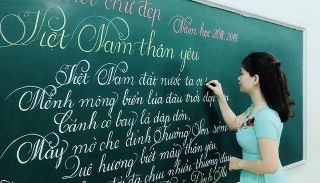 chữ đẹp
Năm học
Việt Nam thân yêu
Việt Nam đất nước ta ơi
Mênh mông biển lúa đâu trời đẹp
Cánh cò bay lả dập dờn,
Mây mờ che đỉnh Trường Sơn sớm
Quê hương biết mấy thân yêu
đời đã chịu nhiều thương đau